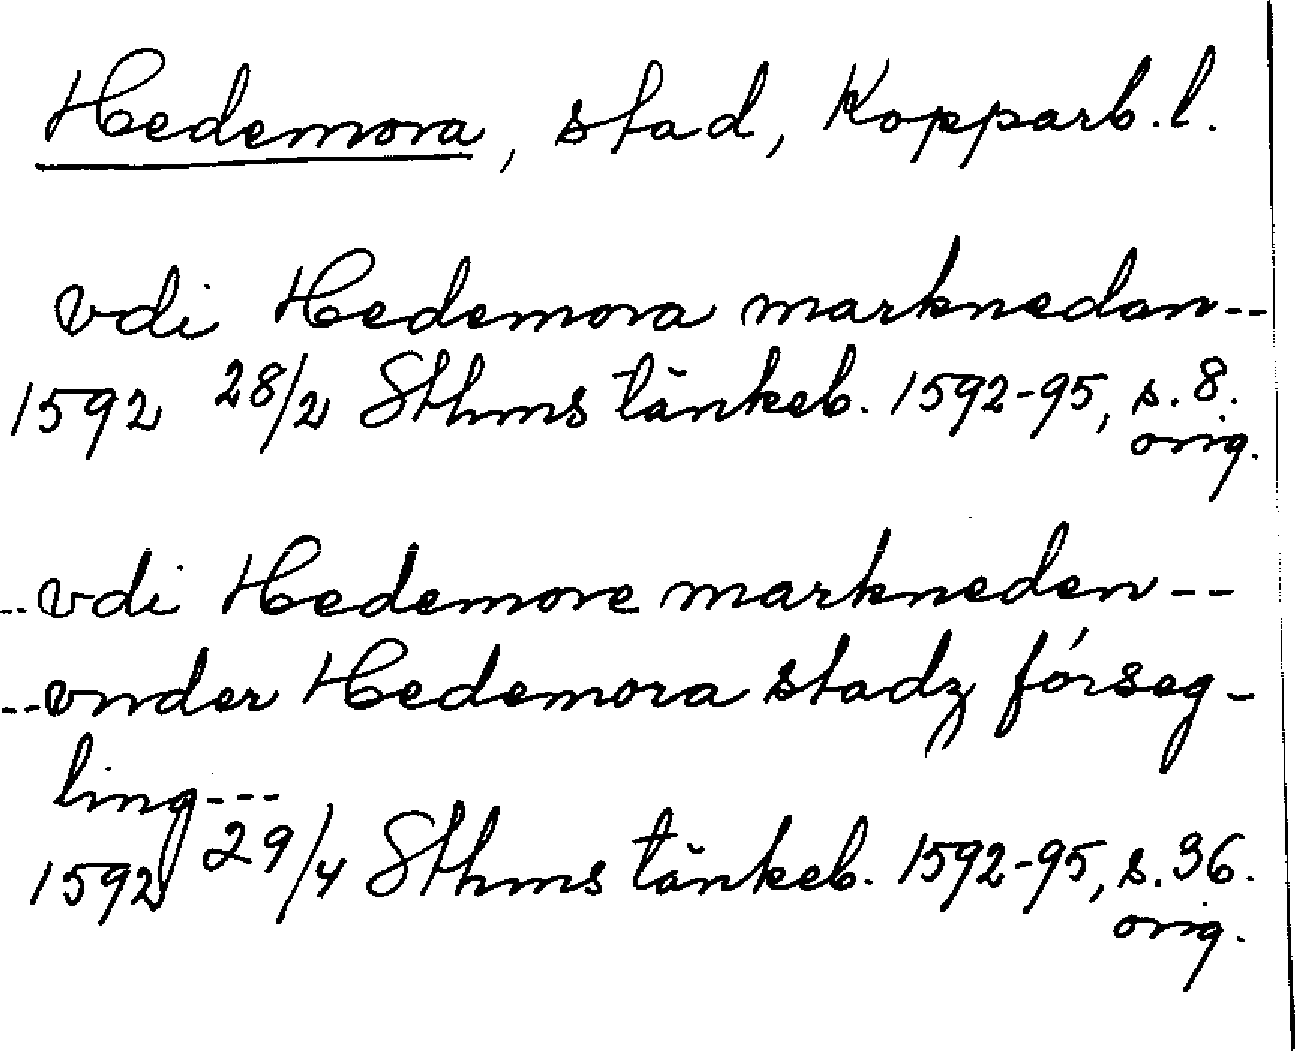 Hedemora, stad, Kopparb.l.
vdi Hedemora marknedan--
1592 28/2 Sthms tänkeb. 1592-95, s. 8.
orig.
--vdi Hedemore markneden--
--vnder Hedemora stadz förseg-
ling---
1592 29/4 Sthms tänkeb. 1592-95, s. 36.
orig.